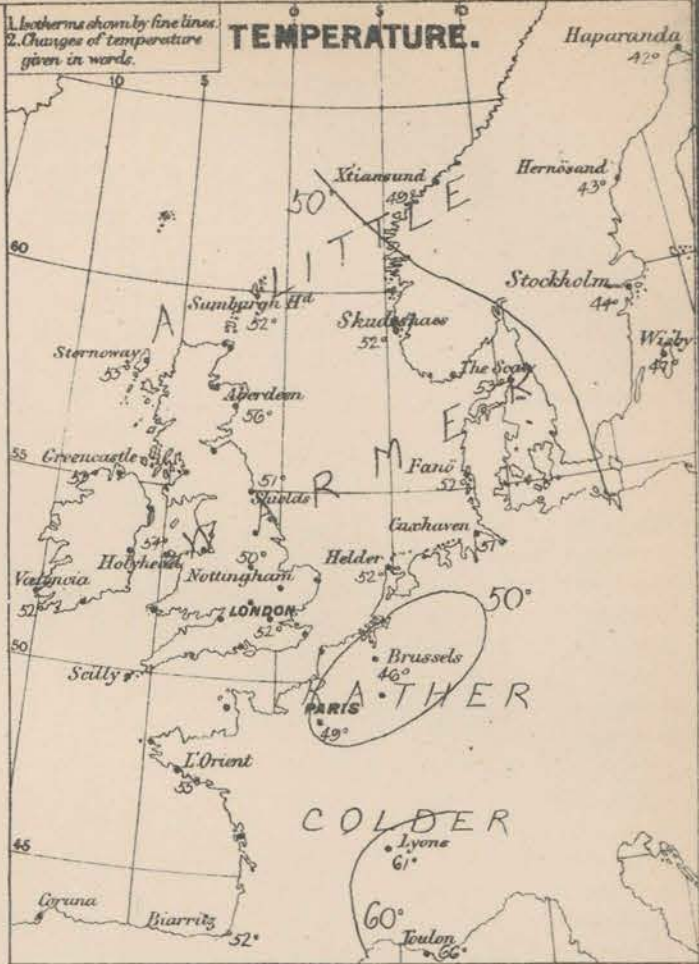 1. Isotherms shown by fine lines.
2. Changes of temperature
given in words.
TEMPERATURE.
10
5
0
5
10
Haparanda
42°
Xtiansund
49°
Hernösand
43°
50
60
A LITTLE
Stockholm
44°
Sumburgh Hd
52°
Skudesnaes
52°
Wisby
47°
Stornoway
53°
The Scaw
53°
Aberdeen
56°
55
Greencastle
52°
51°
Shields
WARMER
Fanö
52°
Cuxhaven
51°
54°
Holyhead
50°
Nottingham
Helder
52°
Valencia
52
LONDON
52°
50°
50
Brussels
46°
Scilly
RATHER
PARIS
49°
L'Orient
55°
COLDER
45
Lyons
61°
Coruna
60°
Biarritz
52°
Toulon
66°